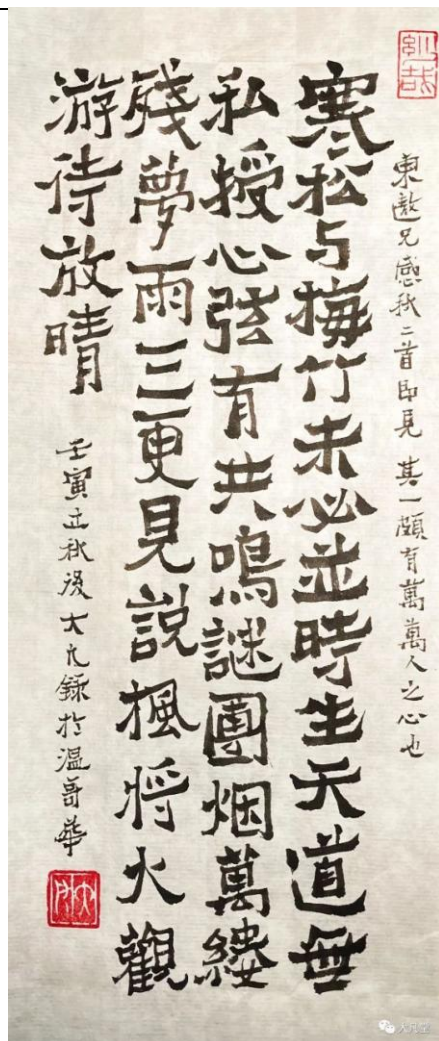 東遨兄感秋二首即見 其一頗有萬萬人之心也
寒松与梅竹未必並時生天道無
私授心弦有共鳴謎團烟萬縷
殘夢雨三更見説楓將火觀
游待放晴
壬寅立秋後大凡錄於温哥華
大凡堂